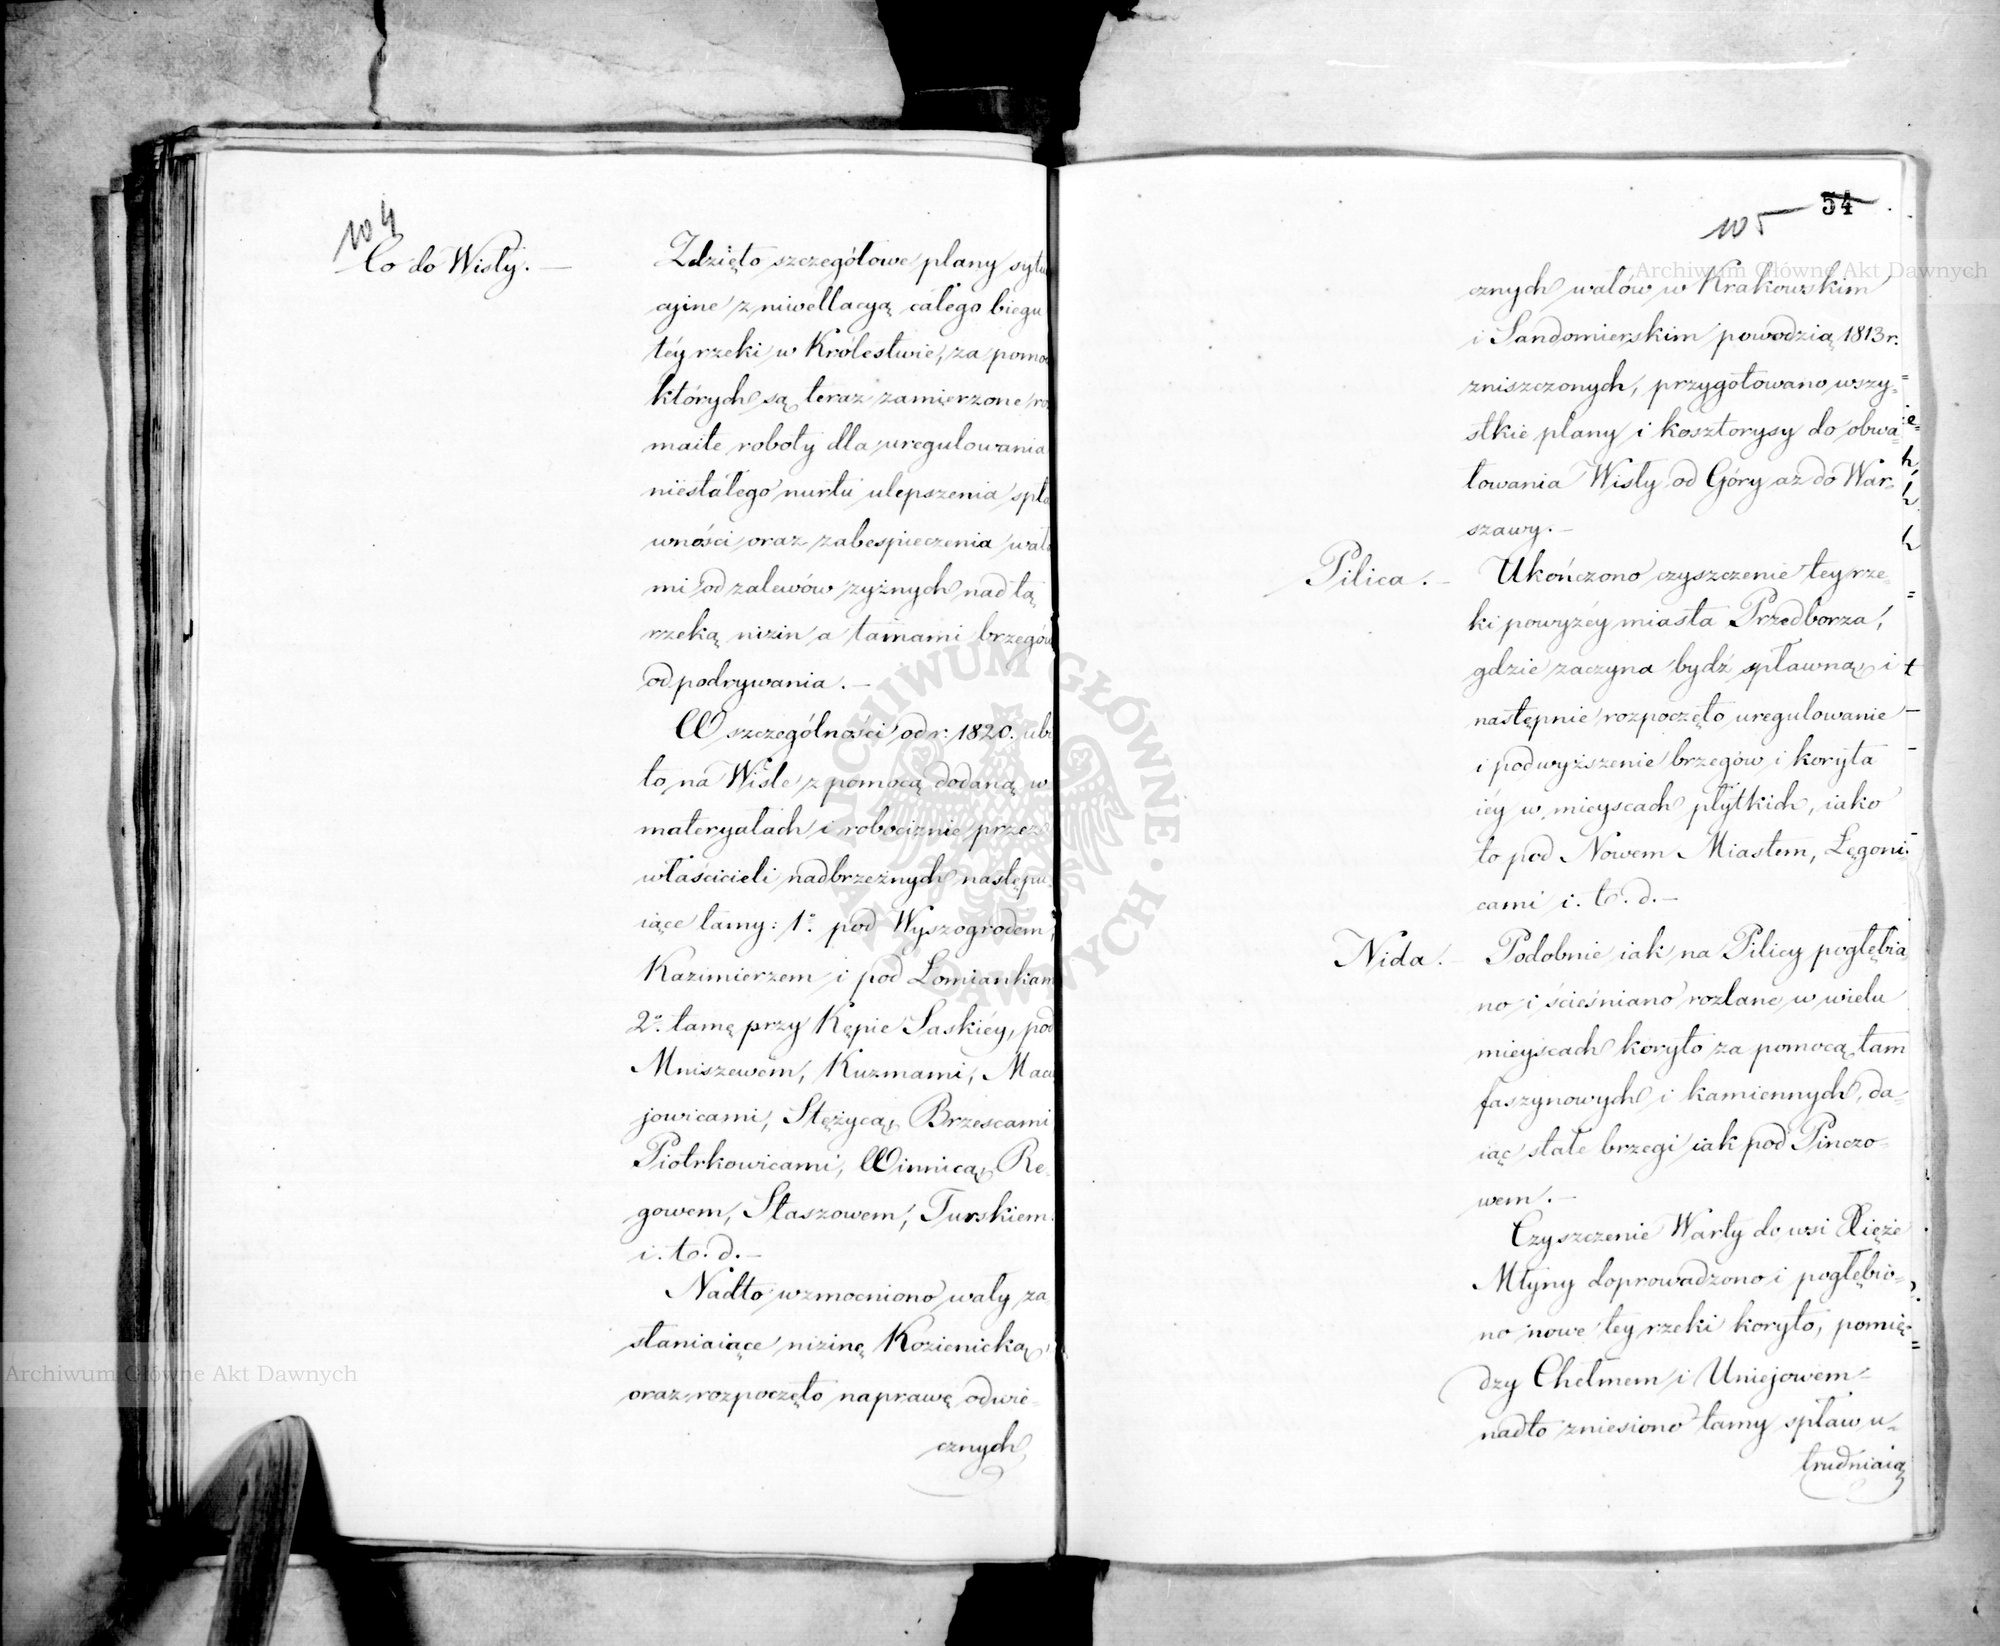 104
Co do Wisły. —
Zdzięto szczegółowe plany sytu
cyine z niwellacyą całego biegu
téy rzeki w Królestwie, za pomo
których są teraz zamierzone ro
maite roboty dla uregulowania
niestałego nurtu ulepszenia spła
wności oraz zabespieczenia wała
mi od zalewów zyżnych nad tą
rzeką nizin a tamami brzegów
od podrywania. —
W szczególności od r. 1820. ubi
to na Wiśle z pomocą dodaną w
materyałach i robociznie przez
właścicieli nadbrzeżnych następu
iące tamy: 1° pod Wyszogrodem,
Kazimierzem i pod Łomiankam
2° tamę przy Kępie Saskiéy, pod
Mniszewem, Kuzmami, Macie
jowicami, Stężycą, Brzescami
Piotrkowicami, Winnicą, Re-
gowem, Staszowem, Turskiem
i. t. d. —
Nadto wzmocniono wały za-
słaniaiące nizinę Kozienicką,
oraz rozpoczęto naprawę odwie-
cznych
54
105
cznych wałów w Krakowskim
i Sandomierskim powodzią 1813 r.
zniszczonych, przygotowano wszy-
stkie plany i kosztorysy do obwa-
łowania Wisły od Góry aż do War-
szawy. —
Pilica. —
Ukończono czyszczenie tey rze-
ki powyżéy miasta Przedborza,
gdzie zaczyna bydź spławną, i
następnie rozpoczęto uregulowanie
i podwyższenie brzegów i koryta
iéy w mieyscach płytkich, iako
to pod Nowem Miastem, Łęgoni-
cami i. t. d. —
Nida. —
Podobnie iak na Pilicy pogłębia
no i ścieśniano rozlane w wielu
mieyscach koryto za pomocą tam
faszynowych i kamiennych, da-
iąc stałe brzegi iak pod Pinczo-
wem. —
Czyszczenie Warty do wsi Xięże
Młyny doprowadzono i pogłębio-
no nowe tey rzeki koryto, pomię-
dzy Chełmem i Uniejowem-
nadto zniesiono tamy spław u-
trudniaią
Archiwum Główne Akt Dawnych
Archiwum Główne Akt Dawnych
ARCHIWUM GŁÓWNE AKT DAWNYCH